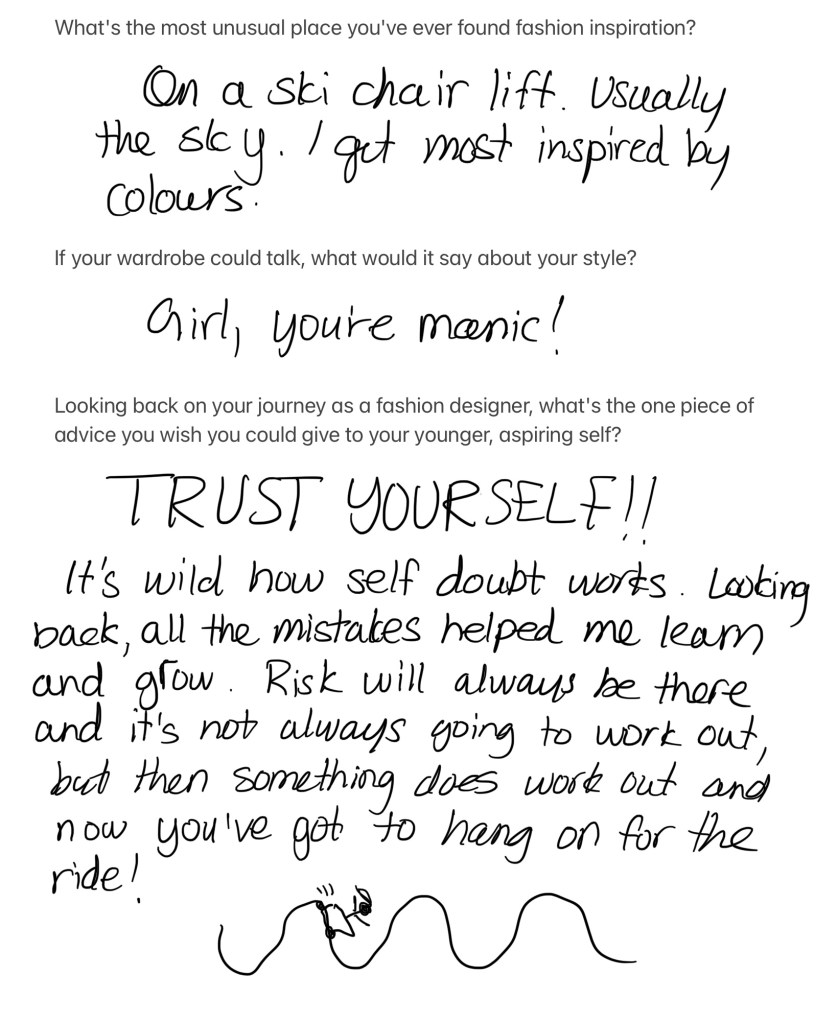 What's the most unusual place you've ever found fashion inspiration?
On a ski chair lift. Usually
the sky. I get most inspired by
colours.
If your wardrobe could talk, what would it say about your style?
Girl, you're manic!
Looking back on your journey as a fashion designer, what's the one piece of
advice you wish you could give to your younger, aspiring self?
TRUST YOURSELF!!
It's wild how self doubt works. Looking
back, all the mistakes helped me learn
and grow. Risk will always be there
and it's not always going to work out,
but then something does work out and
now you've got to hang on for the
ride!